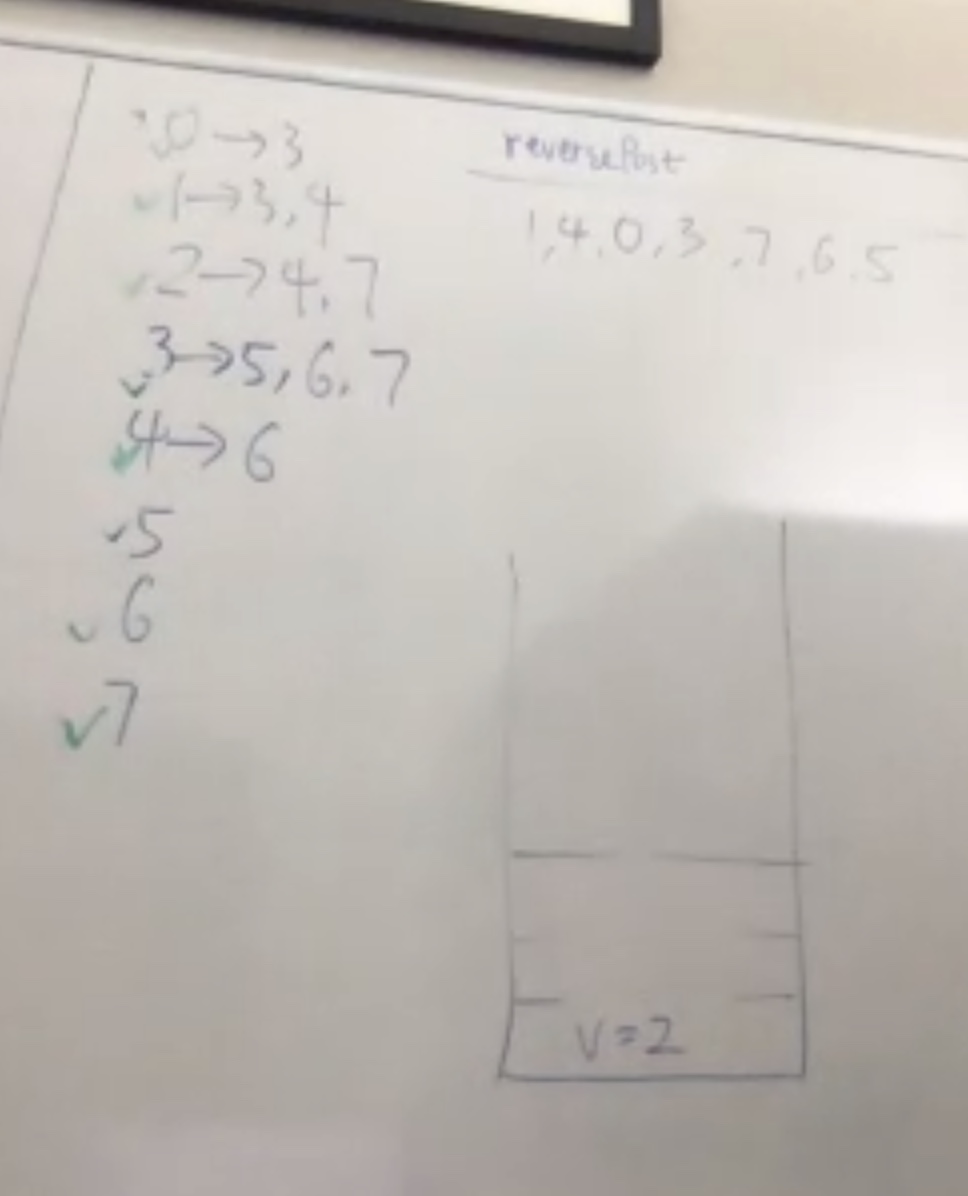 0→3
1→3,4
2→4,7
3→5,6,7
4→6
5
6
7
reversePost
1,4,0,3,7,6,5
v=2